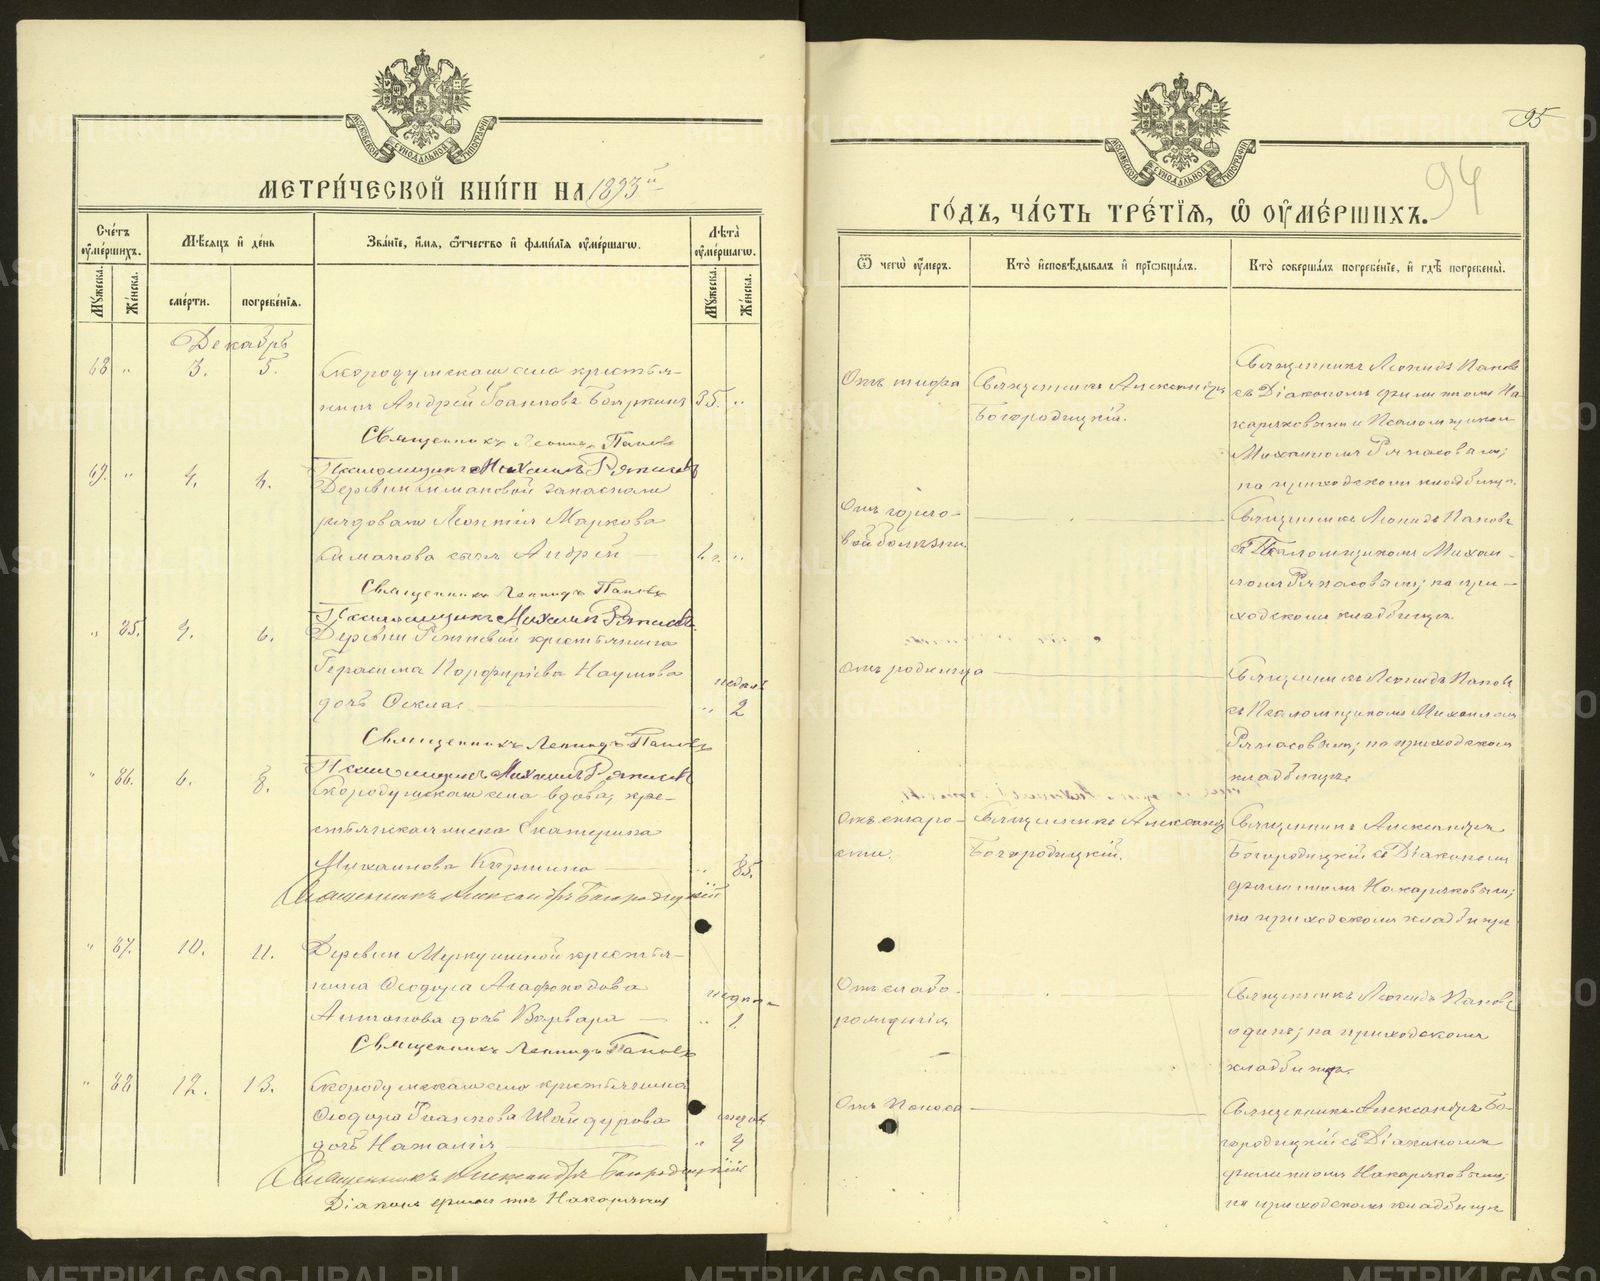 МЕТРИ́ЧЕСКОЙ КНИ́ГИ НА 1893й
Сче́тъ ᲂу҆ме́ршихъ.
Мꙋжеска.
Же́нска.
Мѣ́сяцъ и҆ де́нь
сме́рти.
погребе́нїѧ.
Зва́нїе, и҆́мѧ, ѻ҆́тчество и҆ фами́лїѧ ᲂу҆ме́ршагѡ.
Лѣ́та ᲂу҆ме́ршагѡ.
Мꙋжеска.
Же́нска.
Декабрь
68 " 3. 5. Скородумскаго села крестья-
нинъ Андрей Іоанновъ Бояркинъ 35. "
Священникъ Леонидъ Поповъ
Псаломщикъ Михаилъ Ряпасовъ
69. " 4. 6.
Деревни Симановой запаснаго
рядоваго Леонтія Маркова
Симанова сынъ Андрей
"
Священникъ Леонидъ Поповъ
Псаломщикъ Михаилъ Ряпасовъ
" 85. 4. 6. Деревни крестьянина
Герасима Порфирьева Наумова недѣль
дочь " 2
Священникъ Леонидъ Поповъ
Псаломщикъ Михаилъ Ряпасовъ
" 86. 6. 8.
Скородумскаго села вдова, кре-
стьянская жена Екатерина
Михайлова " 85.
Священникъ Александръ Богородицкій
" 87. 10. 11. Деревни крестья-
нина Ѳеодора Агафоновова недѣля
Антонова дочь Варвара " 1.
Священникъ Леонидъ Поповъ
" 88 12. 13. Скородумскаго села крестьянина
Ѳеодора Шайдурова недѣль
дочь Наталія " 4
Священникъ Александръ Богородицкій
Діаконъ Филиппъ Накаряковъ
95
94
ГО́ДЪ, ЧА́СТЬ ТРЕ́ТЇѦ, Ѡ҆ ОУ҆МЕ́РШИХЪ.
Ѿ чегѡ̀ ᲂу҆́меръ.
Кто̀ и҆сповѣ́дывалъ и҆ прїѡбща́лъ.
Кто̀ соверша́лъ погребе́нїе, и҆ гдѣ̀ погребены̀.
Отъ тифа
Священникъ Александръ
Богородицкій.
Священникъ Леонидъ Поповъ
съ Діакономъ Филиппомъ На-
каряковымъ и Псаломщикомъ
Михаиломъ Ряпасовымъ;
на приходскомъ кладбищѣ.
Отъ горло-
вой болѣзни.
Священникъ Леонидъ Поповъ
съ Псаломщикомъ Михаи-
ломъ Ряпасовымъ; на при-
ходскомъ кладбищѣ.
Отъ родимца
Священникъ Леонидъ Поповъ
съ Псаломщикомъ Михаиломъ
Ряпасовымъ; на приходскомъ
кладбищѣ.
Отъ старо-
сти.
Священникъ Александръ
Богородицкій.
Священникъ Александръ
Богородицкій съ Діакономъ
Филиппомъ Накаряковымъ;
на приходскомъ кладбищѣ
Отъ слабо-
рожденія
Священникъ Леонидъ Поповъ
одинъ; на приходскомъ
кладбищѣ.
Отъ поноса
Священникъ Александръ Бо-
городицкій съ Діакономъ
Филиппомъ Накаряковымъ;
на приходскомъ кладбищѣ
METRIKI.GASO-URAL.RU